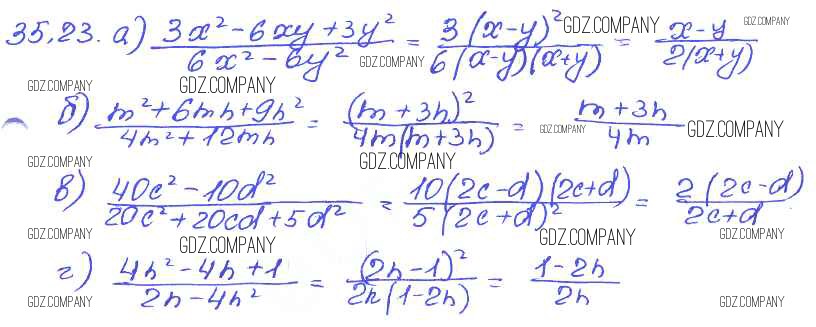 35.23. а) (3x² - 6xy + 3y²)/(6x² - 6y²) = (3(x-y)²)/(6(x-y)(x+y)) = (x-y)/(2(x+y))
GDZ.COMPANY GDZ.COMPANY
GDZ.COMPANY
GDZ.COMPANY GDZ.COMPANY
б) (m² + 6mn + 9n²)/(4m² + 12mn) = ((m + 3n)²)/(4m(m+3n)) = (m + 3n)/(4m)
GDZ.COMPANY GDZ.COMPANY
GDZ.COMPANY GDZ.COMPANY
в) (40c² - 10d²)/(20c² + 20cd + 5d²) = (10(2c-d)(2c+d))/(5(2c+d)²) = (2(2c-d))/(2c+d)
GDZ.COMPANY GDZ.COMPANY GDZ.COMPANY GDZ.COMPANY
г) (4n² - 4n + 1)/(2n - 4n²) = ((2n-1)²)/(2n(1-2n)) = (1-2n)/(2n)
GDZ.COMPANY GDZ.COMPANY